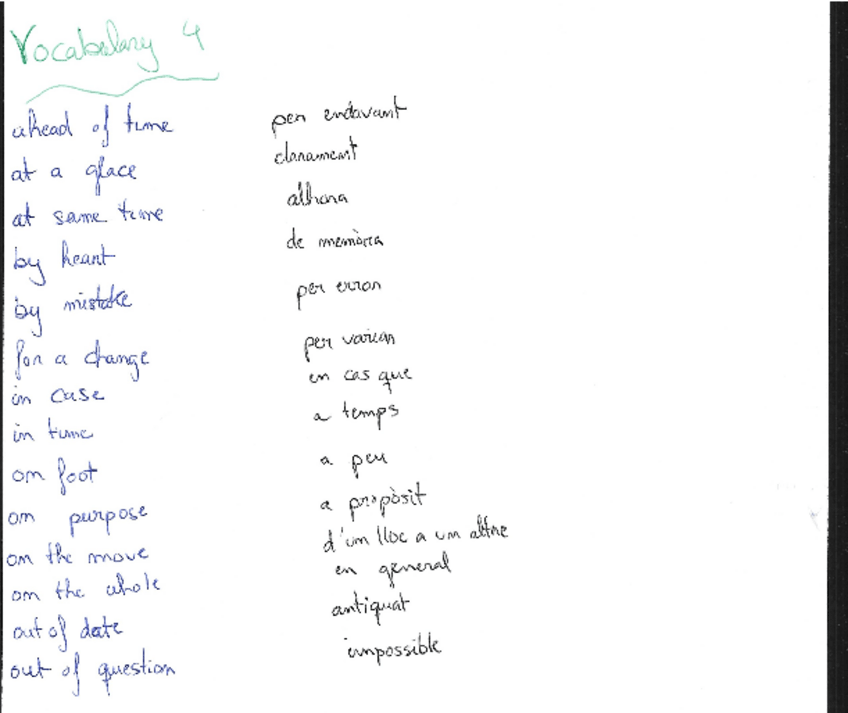 Vocabulary 4
ahead of time per endavant
at a glace clarament
at same time alhora
by heart de memòria
by mistake per error
for a change per variar
in case en cas que
in time a temps
on foot a peu
on purpose a propòsit
on the move d'un lloc a un altre
on the whole en general
out of date antiquat
out of question impossible